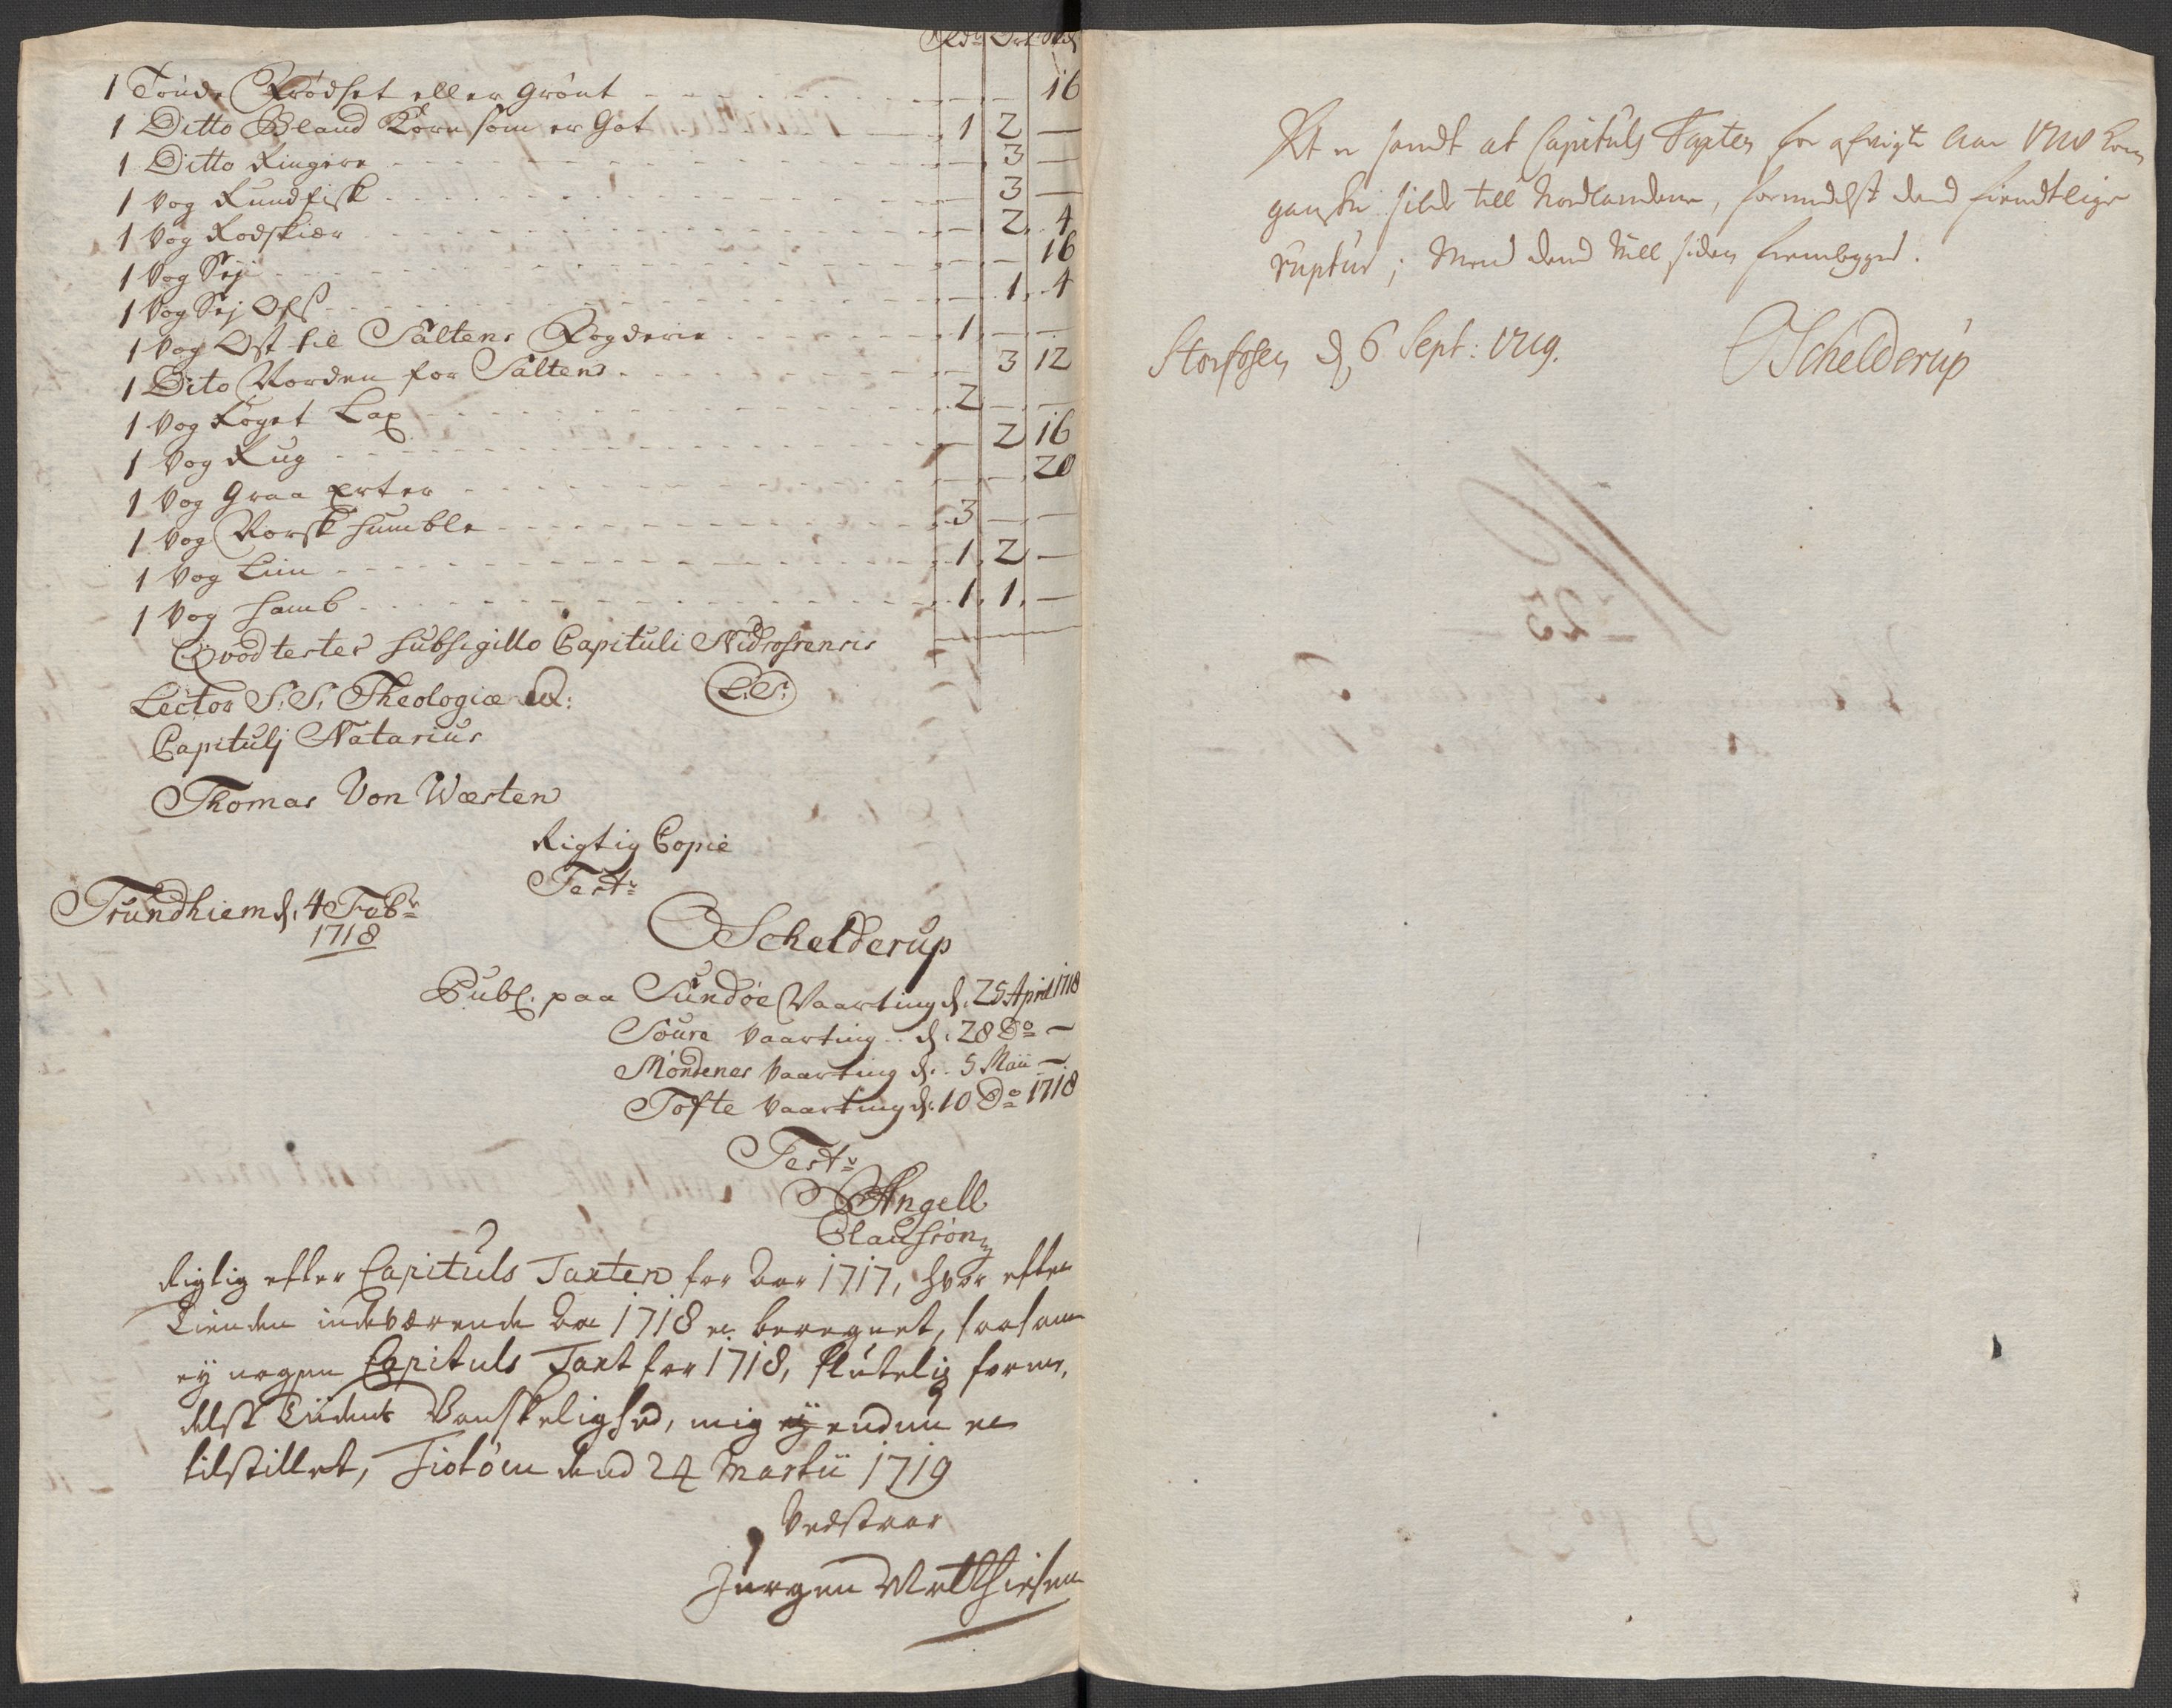 Rdr Ort Sk
1 Tønde Frødset eller Grönt - - - 16
1 Ditto Bland Korn som er Got - 1 2 -
1 Ditto Ringere - - 3 -
1 Vog Rundfisk - - 3 -
1 Vog Rodskiær - - 2 4
1 Vog Sej - - - 16
1 Vog Sej - - 1 4
1 Vog Ost til Saltens Fogderie - 1 - -
1 Dito Norden for Salten - - 3 12
1 Vog Røget Lax - 2 - -
1 Vog Rug - - 2 16
1 Vog Graa Erter - - - 20
1 Vog Norsk Humble - 3 - -
1 Vog Liin - 1 2 -
1 Vog Hamb - 1 1 -
Qvod testes sub sigillo Capituli Nidrosiensis
Lector S: S: Theologiæ &: L.S.
Capitulj Natarius
Thomas Von Westen
Rigtig Copie
Test:
Trundhiem d. 4 Febr
1718
Schelderup
Publ. paa Sundøe Vaarting d. 25 April 1718
Soure Vaarting d. 28 Do -
Møndenes Vaarting d. 5 Maii -
Tofte Vaarting d. 10 Do 1718
Test:
Angell
Claussøn
Rigtig efter Capituls Taxten for Aar 1717, hvor efter
Tienden indeværende Aar 1718 er beregnet, saasom
ej nogen Capituls Taxt for 1718, slutelig forme,
delst Tidens Vanskelighed, mig ej endnu er
tilstillet, Tiotøen dend 24 Martii 1719
Vedstaar
Jørgen Matthiesen
At er sandt at Capituls Taxten for afvigte Aar 1718 kom
ganske silde till Nordlandene, formedelst dend fiendtlige
ruptur; Mend dend vill siden frembyges.
Storfosen d. 6 Sept: 1719.
Schelderup